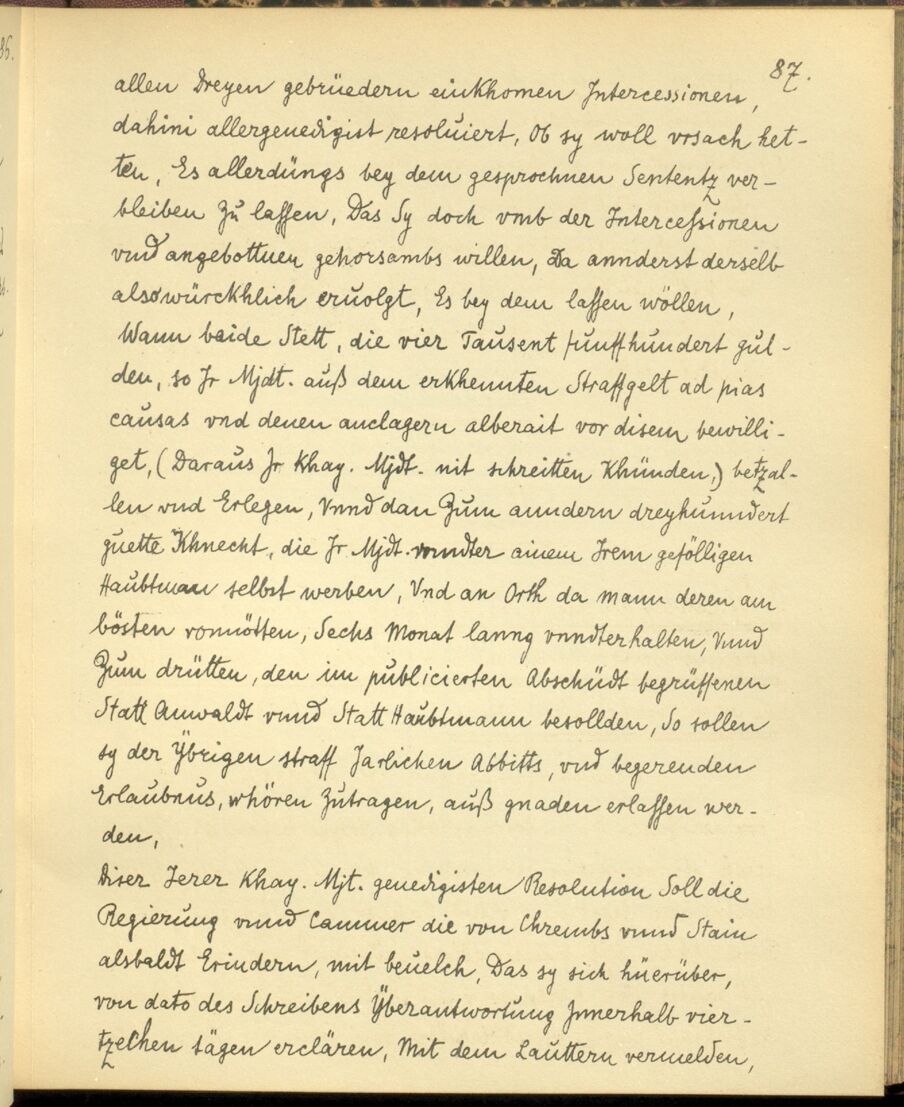 87.
allen Dreyen gebrüedern einkhomen Intercessionen,
dahini allergenedigist resoluiert, Ob sy woll vrsach het-
ten, Es allerdüngs bey dem gesprochnen Sententz ver-
bleiben zu lassen, Das Sy doch vmb der Intercessionen
vnd angebottnen gehorsambs willen, Da annderst derselb
also würckhlich eruolgt, Es bey dem lassen wöllen,
Wann beide Stett, die vier Tausent funffhundert gul-
den, so Jr Mjdt. auß dem erkhennten Straffgelt ad pias
causas vnd denen anclagern alberait vor disem bewilli-
get, (Daraus Jr Khay. Mjdt. nit schreitten Khünden,) betzal-
len vnd Erlegen, Vnnd dan Zum anndern dreyhunndert
guette Khnecht, die Jr Mjdt. vnndter ainem Irem gefölligen
Haubtman selbst werben, Vnd an Orth da mann deren am
bösten vonnötten, Sechs Monat lanng vnndterhalten, Vnnd
Zum drütten, den im publicierten Abschüdt begrüffenen
Statt Anwaldt vnnd Statt Haubtmann besollden, So sollen
sy der Ÿbrigen straff Jarlichen Abbitts, vnd begerenden
Erlaubnus, whören Zutragen, auß gnaden erlassen wer-
den,
Diser Jerer Khay. Mjt. genedigisten Resolution Soll die
Regierung vnnd Cammer die von Chrembs vnnd Stain
alsbaldt Erindern, mit beuelch, Das sy sich hüerüber,
von dato des Schreibens Ÿberantwortung Jnnerhalb vier-
tzechen tägen erclären, Mit dem Lauttern vermelden,